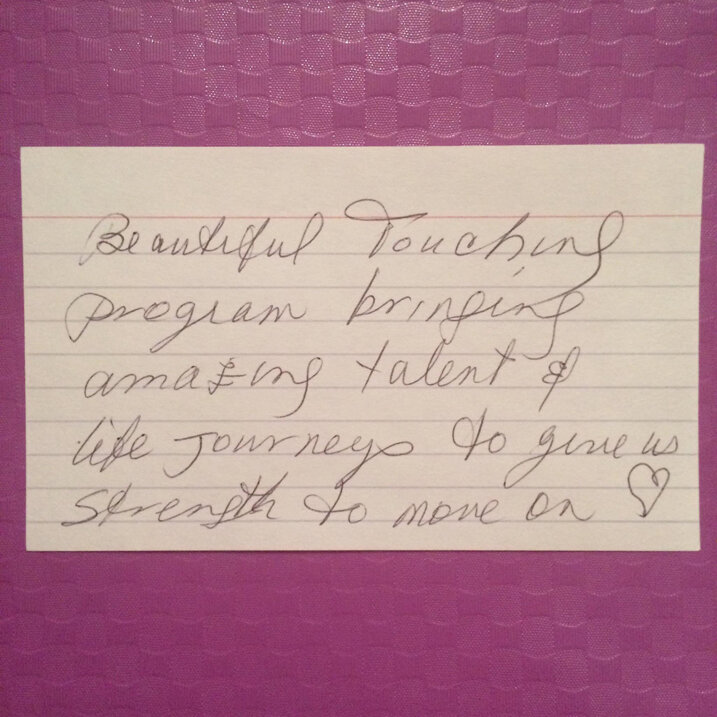 Beautiful Touching
program bringing
amazing talent &
life journeys to give us
strength to move on ♡